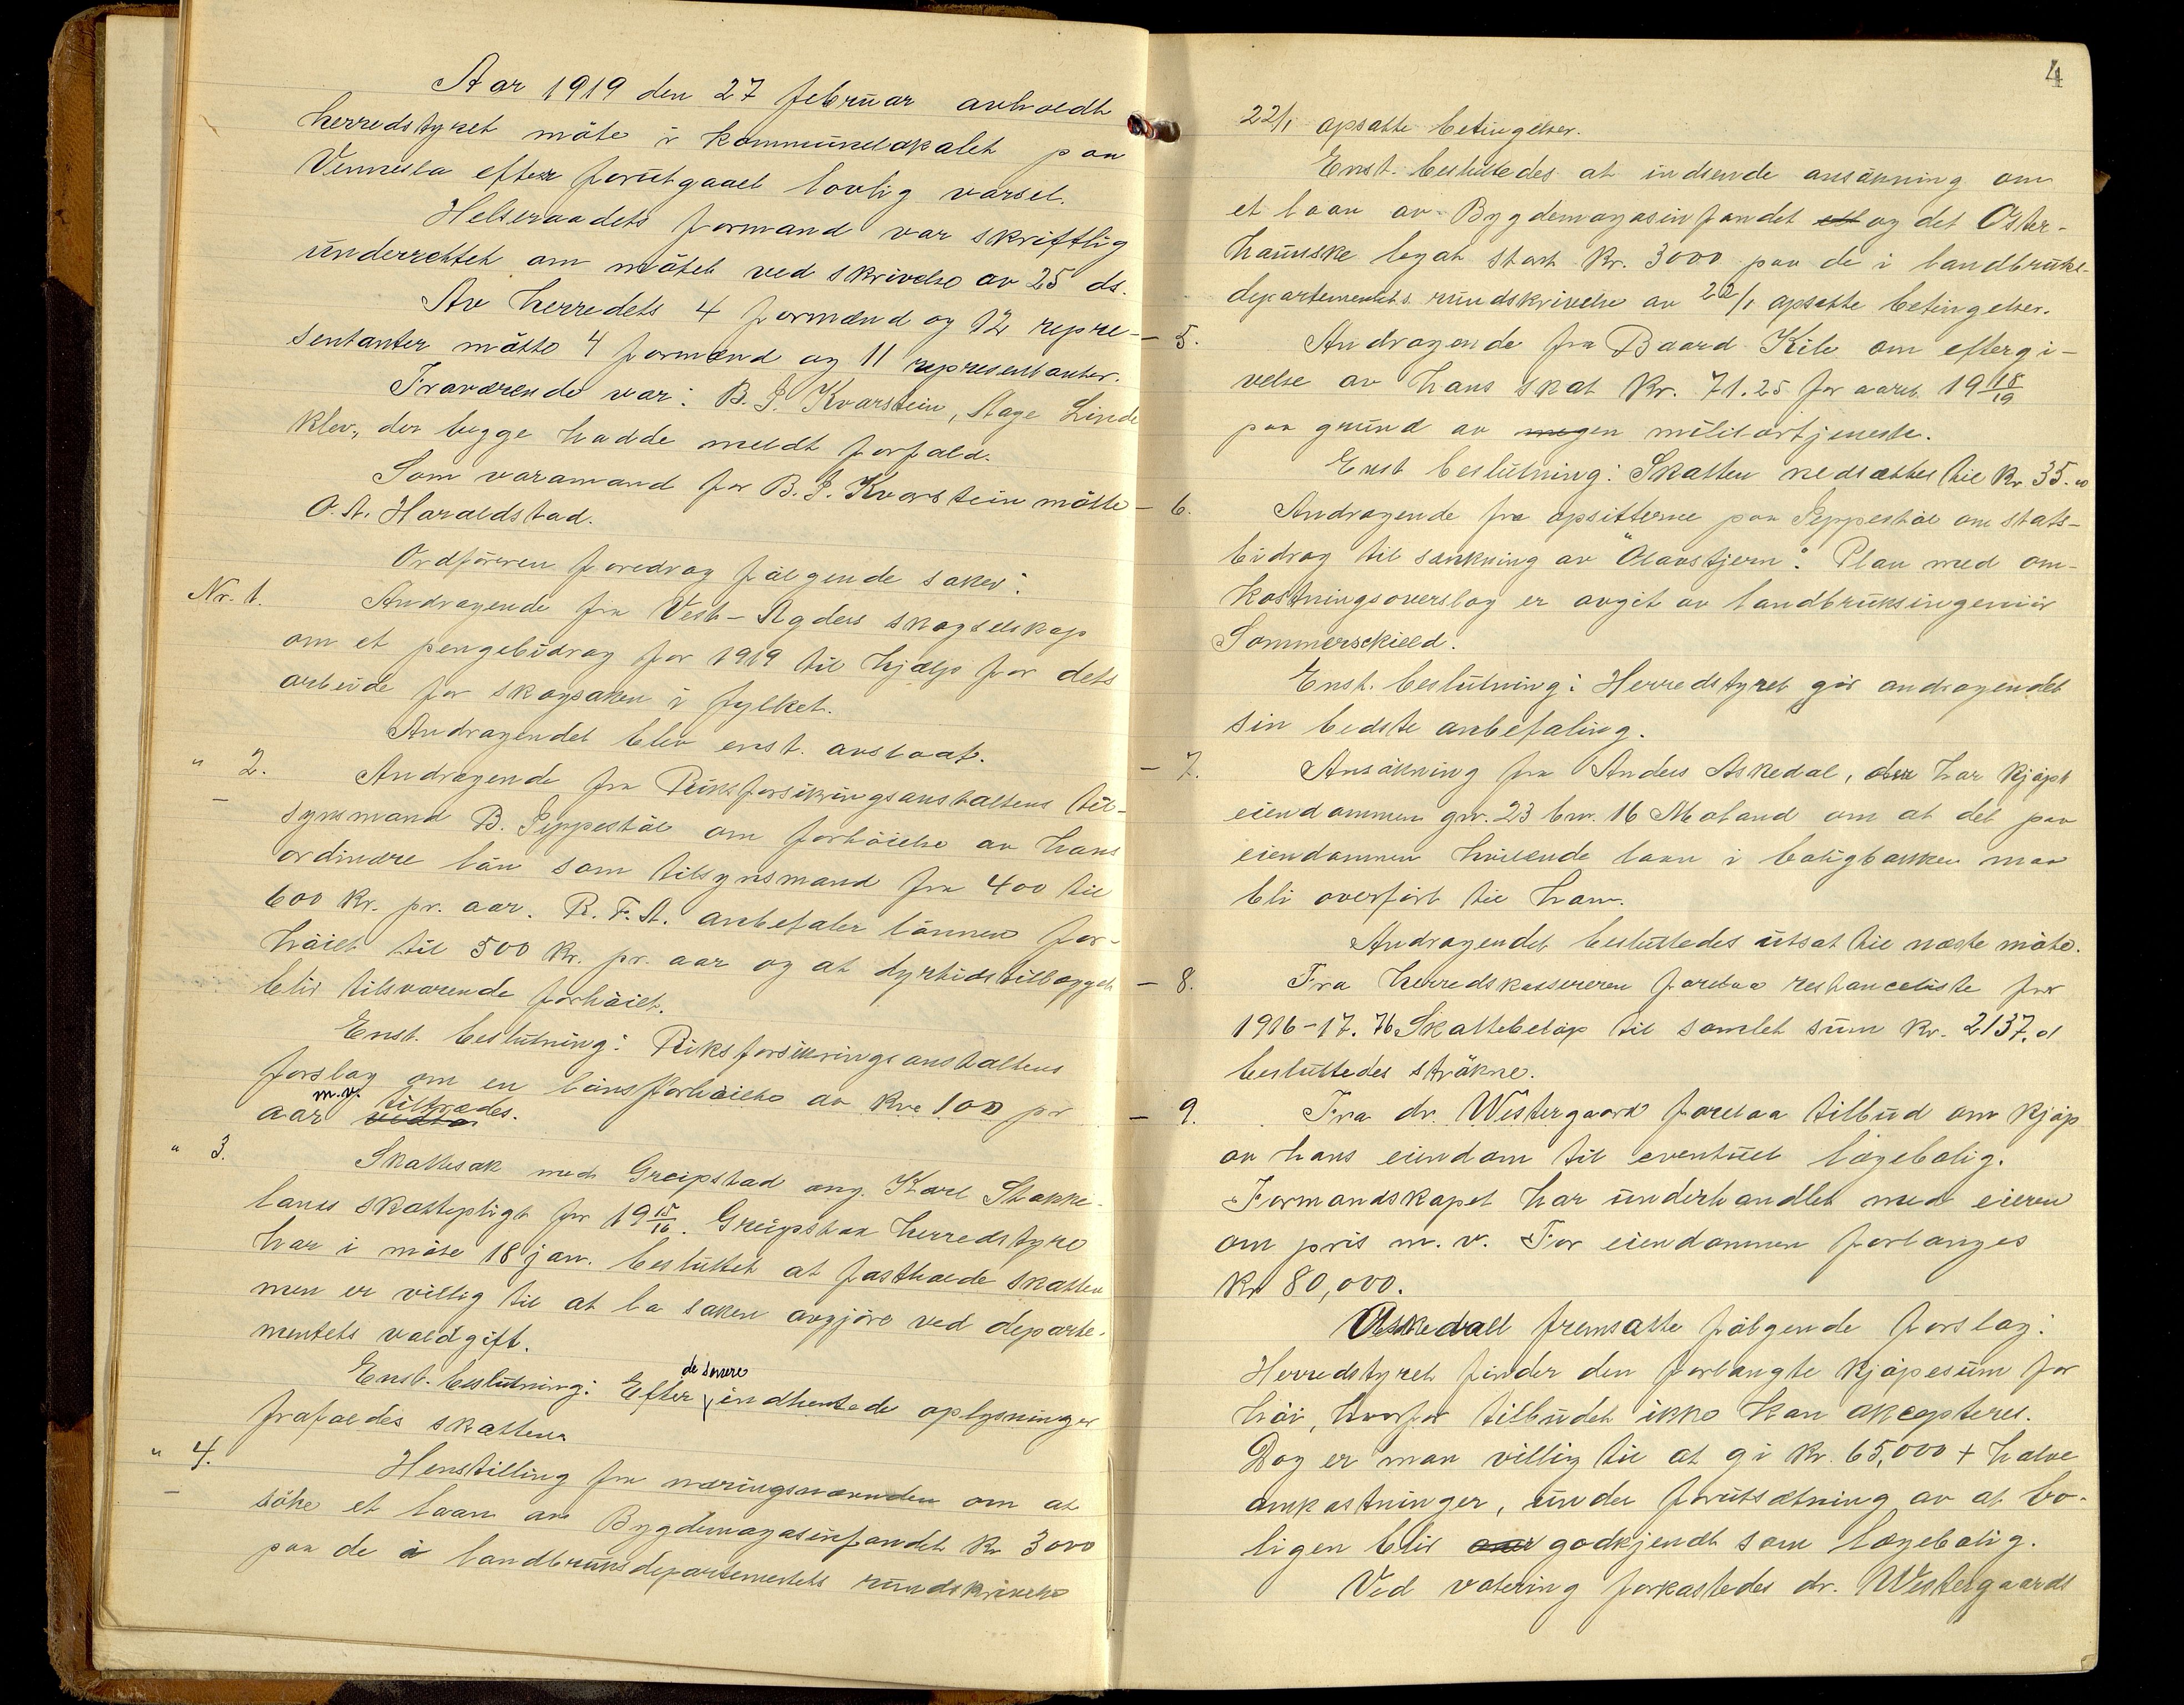 Aar 1919 den 27 februar avholdt
herredstyret möte i kommunelokalet paa
Vennesla efter forutgaaet lovlig varsel.
Helseraadets formand var skriftlig
underrettet om mötet ved skrivelse av 25 ds.
Av herredets 4 formænd og 12 repre-
sentanter mötte 4 formænd og 11 representanter.
Fraværende var: B. J. Kvarstein, Aage Linde
klev, der begge hadde meldt forfald.
Som varamand for B. J. Kvarstein mötte
O. A. Haraldstad.
Ordföreren foredrog fölgende saker:
Nr. 1. Andragende fra Vest-Agders skogselskap
om et pengebidrag for 1919 til hjælp for dets
arbeide for skogsaken i fylket.
Andragendet blev enst. avslaat.
" 2. Andragende fra Riksforsikringsanstaltens til-
synsmand B. Jeppestöl om forhöielse av hans
ordinære lön som tilsynsmand fra 400 til
600 kr. pr. aar. R. F. A. anbefaler lönnen for-
höiet til 500 kr. pr. aar og at dyrtidstillægget
blir tilsvarende forhöiet.
Enst. beslutning: Riksforsikringsanstaltens
forslag om en lönsforhöielse av kr. 100 pr
aar m.v. tiltrædes.
" 3. Skattesak med Greipstad ang. Karl Stokke-
lands skattepligt for 19 15/16. Greipstad herredstyre
har i möte 18 jan. besluttet at fastholde skatten
men er villig til at la saken avgjöre ved departe-
mentets voldgift.
Enst. beslutning: Efter de senere indhentede oplysninger
frafaldes skatten.
" 4. Henstilling fra næringsnævnden om at
söke et laan av Bygdemagasinfondet kr 3000
paa de i landbruksdepartementets rundskrivelse
4
22/1 opsatte betingelser.
Enst. besluttedes at indsende ansökning om
et laan av Bygdemagasinfondet og det Öster-
haunske legat stort kr. 3000 paa de i landbruks-
departementets rundskrivelse av 22/1 opsatte betingelser.
- 5. Andragende fra Baard Kile om eftergi-
velse av hans skat kr. 71.25 for aaret 19 18/19
paa grund av militærtjeneste.
Enst beslutning: Skatten nedsættes til kr 35.00
- 6. Andragende fra opsitterne paa Jeppestöl om stats-
bidrag til sænkning av "Olavstjern". Plan med om-
kostningsoverslag er avgit av landbruksingeniör
Sommerschield.
Enst. beslutning: Herredstyret gir andragendet
sin bedste anbefaling.
- 7. Ansökning fra Anders Askedal, der har kjöpt
eiendommen gnr. 23 bnr. 16 Moland om at det paa
eiendommen hvilende laan i boligbanken maa
bli overfört til ham.
Andragendet besluttedes utsat til næste möte.
- 8. Fra herredskassereren forelaa restanceliste for
1916-17. 76 Skattebelöp til samlet sum kr. 2137.01
besluttedes strökne.
- 9. Fra dr. Westergaard forelaa tilbud om kjöp
av hans eiendom til eventuel lægebolig.
Formandskapet har underhandlet med eieren
om pris m. v. For eiendommen forlanges
kr 80,000.
Askedall fremsatte fölgende forslag:
Herredstyret finder den forlangte kjöpesum for
höi, hvorfor tilbudet ikke kan akcepteres.
Dog er man villig til at gi kr. 65,000 + halve
omkostninger, under forutsætning av at bo-
ligen blir godkjendt som lægebolig.
Ved votering forkastedes dr. Westergaards